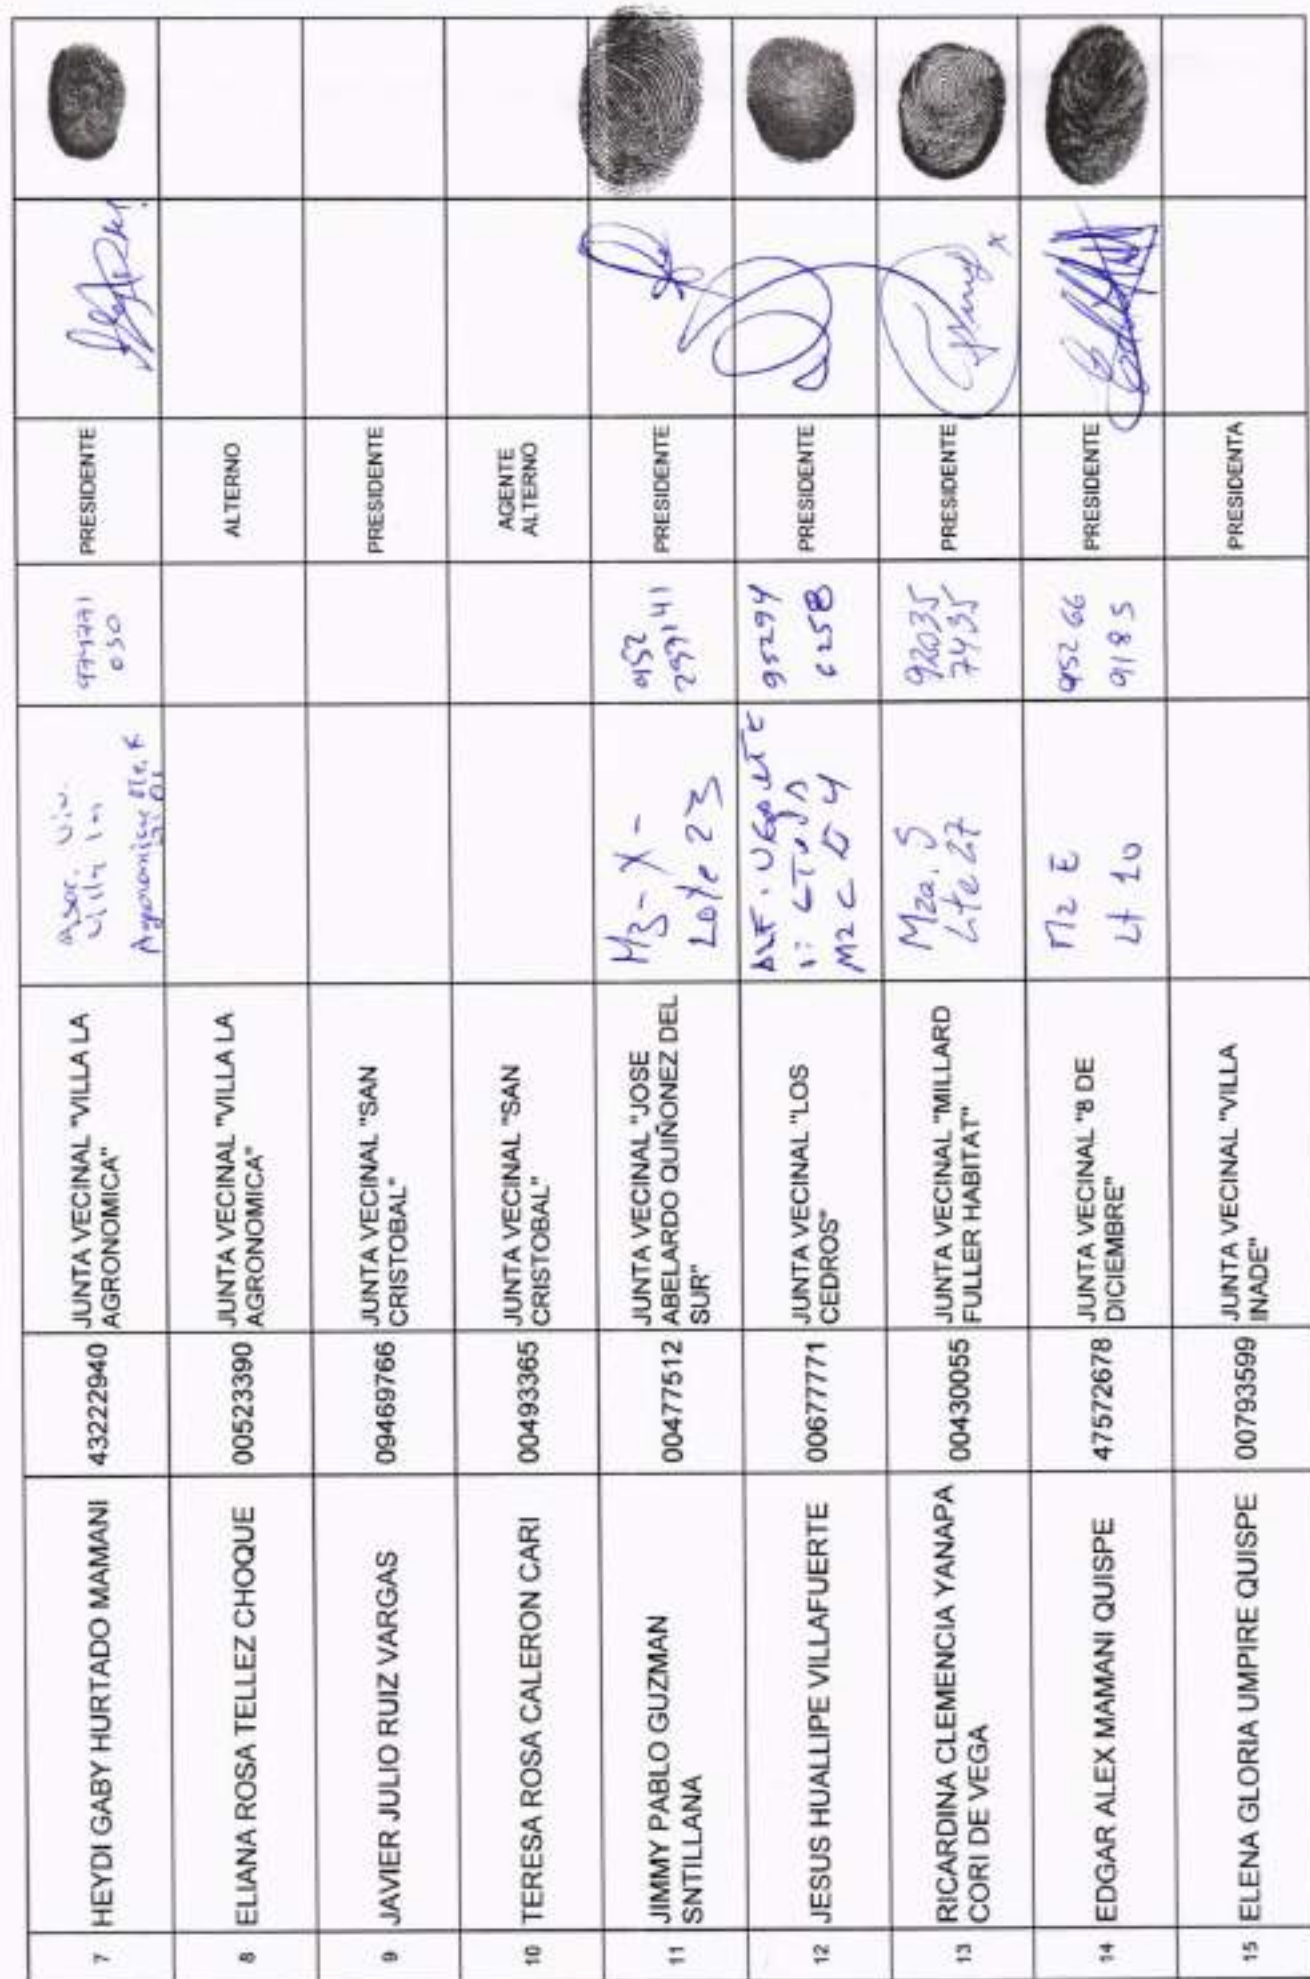 7
HEYDI GABY HURTADO MAMANI
43222940
JUNTA VECINAL "VILLA LA
AGRONOMICA"
Asoc. Viv.
Villa la
030
PRESIDENTE
8
ELIANA ROSA TELLEZ CHOQUE
00523390
JUNTA VECINAL "VILLA LA
AGRONOMICA"
ALTERNO
9
JAVIER JULIO RUIZ VARGAS
09469766
JUNTA VECINAL "SAN
CRISTOBAL"
PRESIDENTE
10
TERESA ROSA CALERON CARI
00493365
JUNTA VECINAL "SAN
CRISTOBAL"
AGENTE
ALTERNO
11
JIMMY PABLO GUZMAN
SNTILLANA
00477512
JUNTA VECINAL "JOSE
ABELARDO QUIÑONEZ DEL
SUR"
Mz- X -
Lote 23
952
PRESIDENTE
12
JESUS HUALLIPE VILLAFUERTE
00677771
JUNTA VECINAL "LOS
CEDROS"
Mz C Lt 4
95294
6258
PRESIDENTE
13
RICARDINA CLEMENCIA YANAPA
CORI DE VEGA
00430055
JUNTA VECINAL "MILLARD
FULLER HABITAT"
Mza. S
Lte 27
92035
7435
PRESIDENTE
14
EDGAR ALEX MAMANI QUISPE
47572678
JUNTA VECINAL "8 DE
DICIEMBRE"
Mz E
Lt 10
952 66
9185
PRESIDENTE
15
ELENA GLORIA UMPIRE QUISPE
00793599
JUNTA VECINAL "VILLA
INADE"
PRESIDENTA